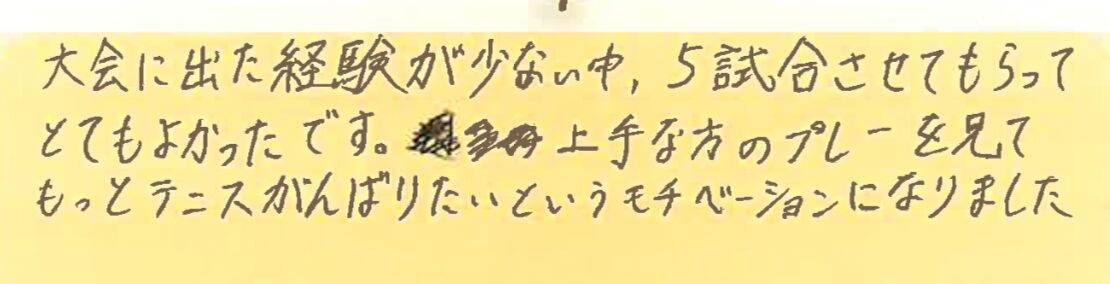 大会に出た経験が少ない中, 5試合させてもらって
とてもよかったです。上手な方のプレーを見て
もっとテニスがんばりたいというモチベーションになりました